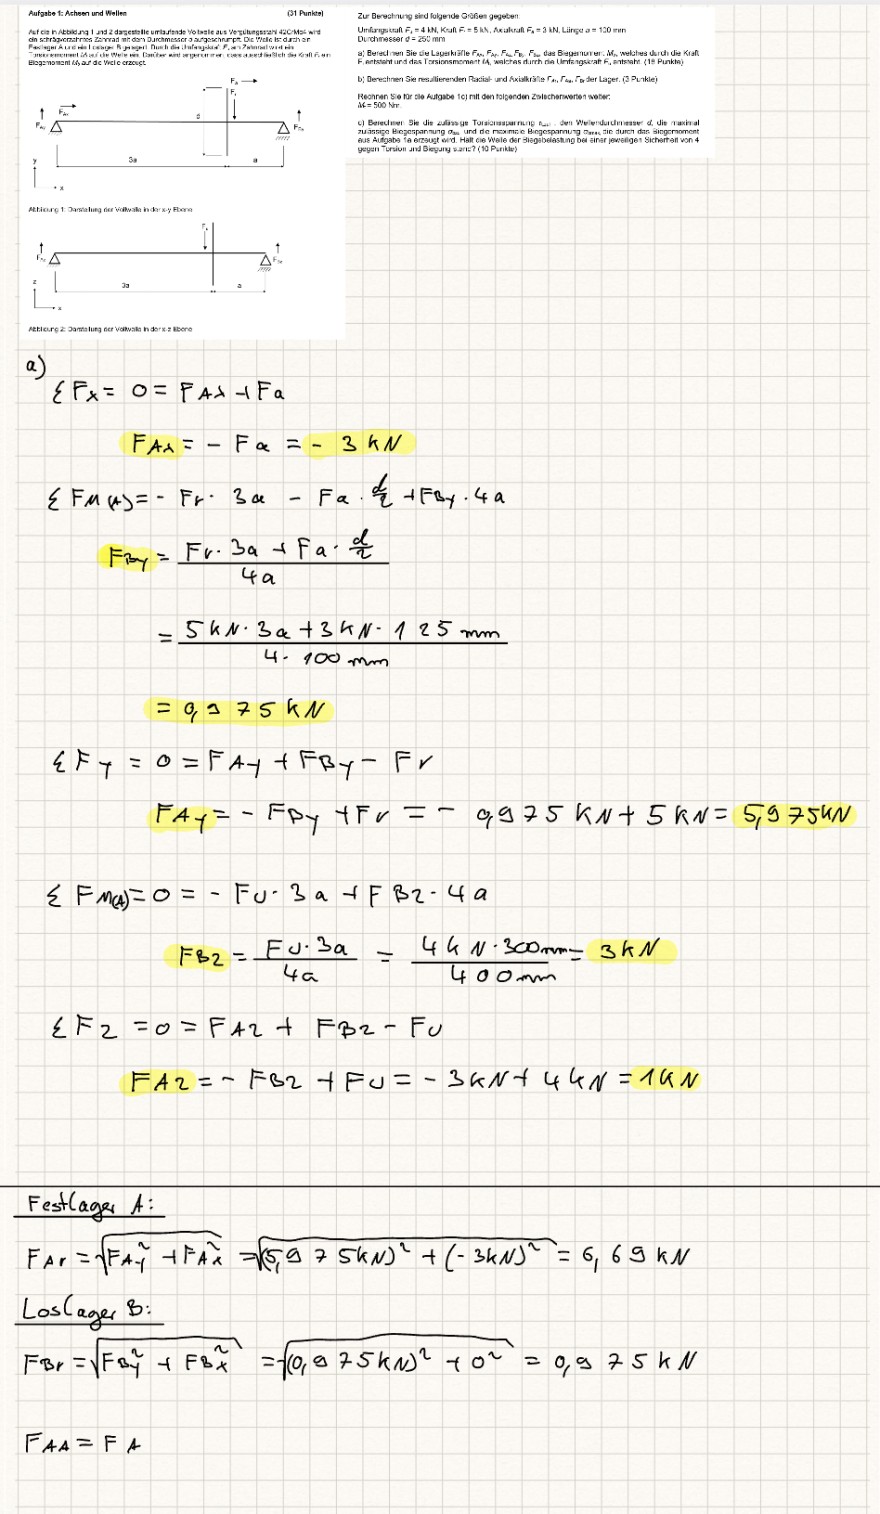 Aufgabe 1: Achsen und Wellen (31 Punkte)
Auf die in Abbildung 1 und 2 dargestellte umlaufende Vollwelle aus Vergütungsstahl 42CrMo4 wird
ein schrägverzahntes Zahnrad mit dem Durchmesser d aufgeschrumpft. Die Welle ist durch ein
Festlager A und ein Loslager B gelagert. Durch die Umfangskraft Fu am Zahnrad wird ein
Torsionsmoment Mt auf die Welle ein. Darüber wird angenommen, dass ausschließlich die Kraft Fr ein
Biegemoment Mb auf die Welle erzeugt.
Fa
Fr
FAx
d
FAy
FBy
3a
a
y
x
Abbildung 1: Darstellung der Vollwelle in der x-y Ebene
FAz
FBz
3a
a
z
x
Abbildung 2: Darstellung der Vollwelle in der x-z Ebene
Zur Berechnung sind folgende Größen gegeben:
Umfangskraft Fu = 4 kN, Kraft Fr = 5 kN, Axialkraft Fa = 3 kN, Länge a = 100 mm
Durchmesser d = 250 mm
a) Berechnen Sie die Lagerkräfte FAx, FAy, FAz, FBy, FBz, das Biegemoment Mb, welches durch die Kraft
Fr entsteht und das Torsionsmoment Mt, welches durch die Umfangskraft Fu entsteht. (18 Punkte)
b) Berechnen Sie resultierenden Radial- und Axialkräfte FAr, FAa, FBr der Lager. (3 Punkte)
Rechnen Sie für die Aufgabe 1c) mit den folgenden Zwischenwerten weiter:
Mt = 500 Nm
c) Berechnen Sie die zulässige Torsionsspannung, den Wellendurchmesser d, die maximal
zulässige Biegespannung und die maximale Biegespannung, die durch das Biegemoment
aus Aufgabe 1a erzeugt wird. Hält die Welle der Biegebelastung bei einer jeweiligen Sicherheit von 4
gegen Torsion und Biegung stand? (10 Punkte)
a)
Σ Fx = 0 = FAx + Fa
FAx = - Fa = - 3 kN
Σ FM(A) = - Fr · 3a - Fa · d/2 + FBy · 4a
FBy = (Fr · 3a + Fa · d/2) / 4a
= (5kN · 3a + 3kN · 125 mm) / (4 · 100 mm)
= 0,975 kN
Σ Fy = 0 = FAy + FBy - Fr
FAy = - FBy + Fr = - 0,975 kN + 5 kN = 5,975kN
Σ FM(A) = 0 = - FU · 3a + FBz · 4a
FBz = FU · 3a / 4a = 4kN · 300mm / 400mm = 3kN
Σ Fz = 0 = FAz + FBz - FU
FAz = - FBz + FU = - 3kN + 4kN = 1kN
Festlager A:
FAr = √(FAy² + FAx²) = √((5,975kN)² + (-3kN)²) = 6,69 kN
Loslager B:
FBr = √(FBy² + FBx²) = √((0,975kN)² + 0²) = 0,975 kN
FAA = FA